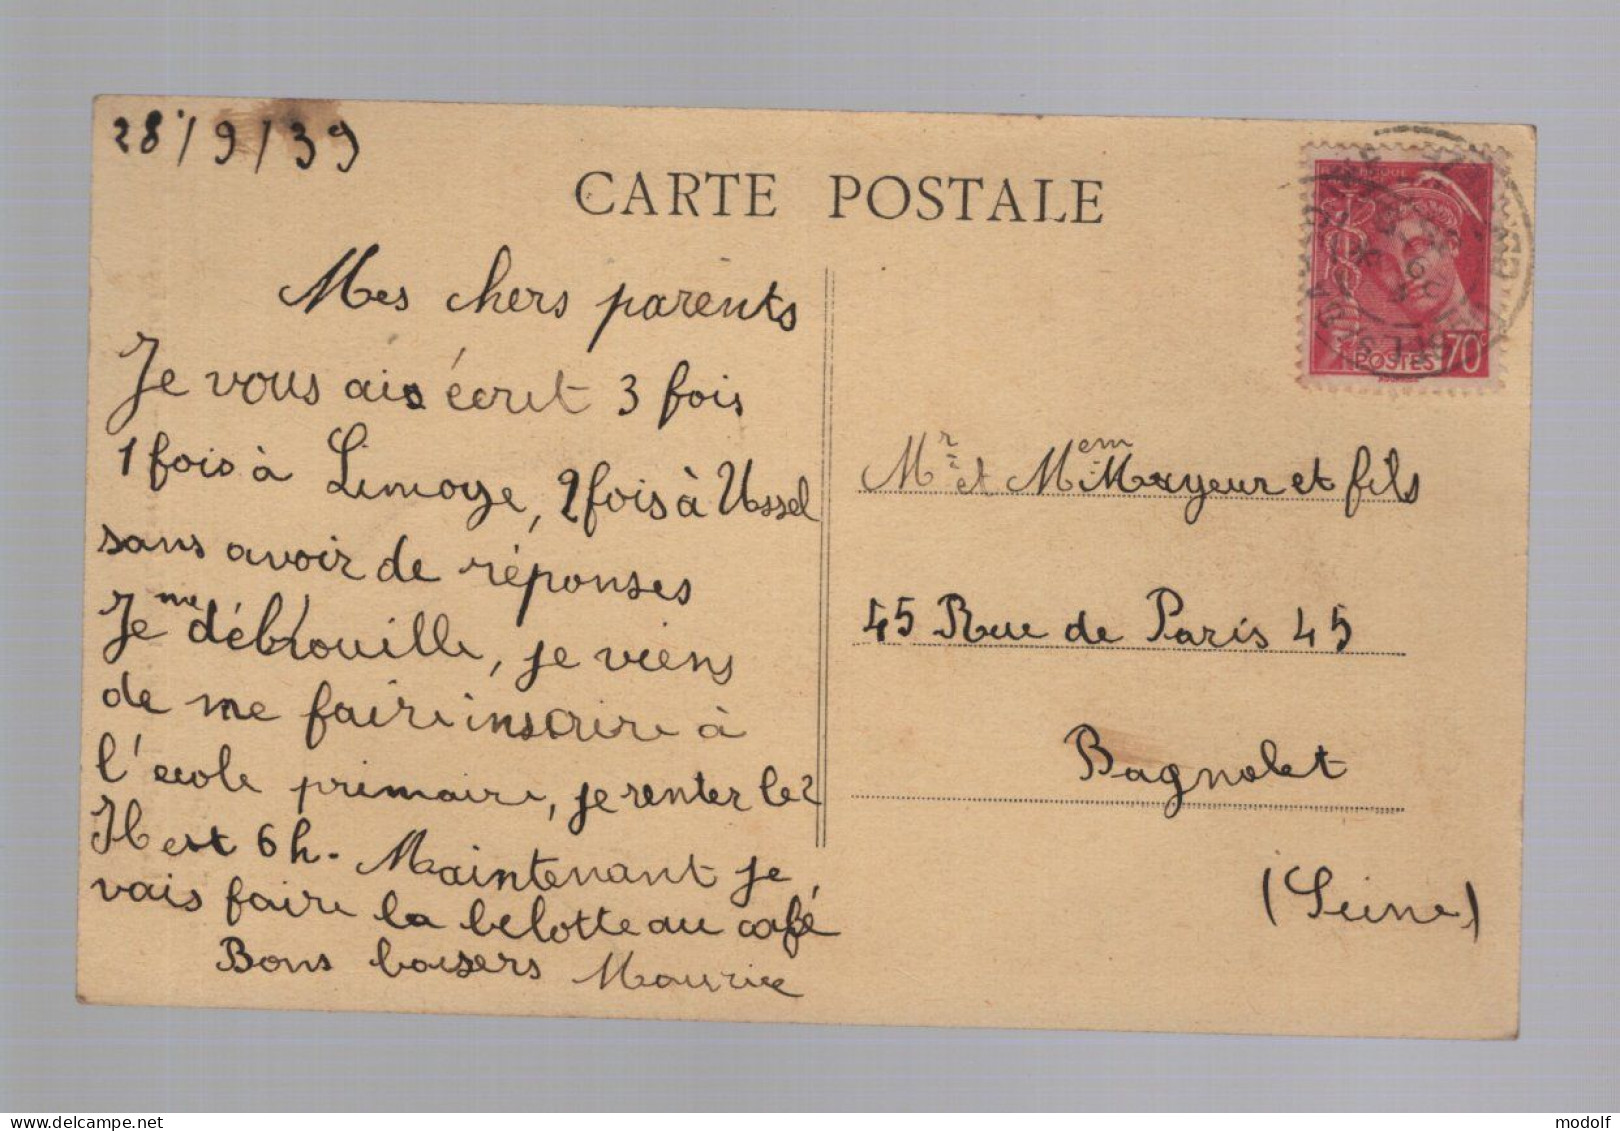 28/9/39
CARTE POSTALE
Mes chers parents
Je vous ais écrit 3 fois
1 fois à Limoge, 2 fois à Ussel
sans avoir de réponses
Je me débrouille, je viens
de me faire inscrire à
l'école primaire, je renter le 2
Il est 6h. Maintenant je
vais faire la belotte au café
Bons baisers Maurice
POSTES 70c
Mr et Mem Mayeur et fils
45 Rue de Paris 45
Bagnolet
(Seine)
www.delcampe.net
modolf